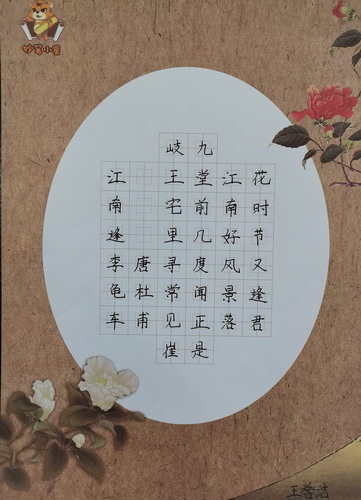 江南逢李龟车
唐杜甫
岐王宅里寻常见崔
九堂前几度闻正是
江南好风景落
花时节又逢君